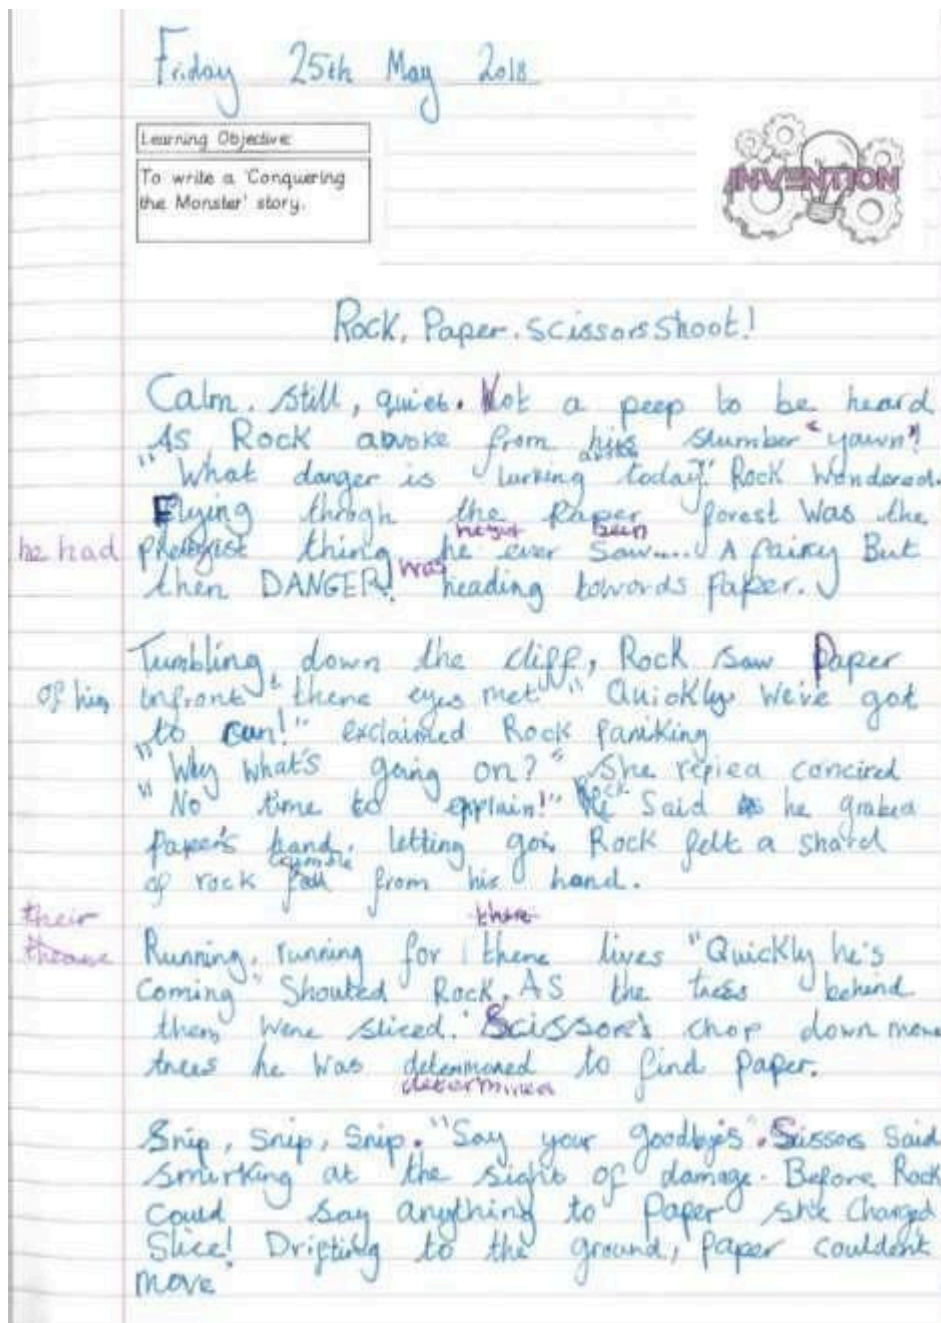 Friday 25th May 2018
Learning Objective:
To write a 'Conquering
the Monster' story.
INVENTION
Rock, Paper. Scissors shoot!
Calm. still, quiet. Not a peep to be heard
As Rock awoke from his slumber "yawn"!
"What danger is lurking today?" Rock Wondered.
Flying throgh the Paper forest Was the
he had thing he ever been saw.... A fairy But
then DANGER! was heading towards Paper.
Tumbling down the cliff, Rock saw Paper
infront of him, there eyes met "Quickly we've got
to run!" exclaimed Rock paniking
"Why what's going on?" She repied concired
"No time to epplain!" Rock Said as he grabed
Paper's hand, letting go, Rock felt a shard
of rock crumble from his hand.
their
Running, running for there lives "Quickly he's
coming" Shouted Rock, AS the trees behind
them were sliced. Scissors chop down more
trees he was determoned to find Paper.
determined
Snip, Snip, Snip. "Say your goodbyes". Scissors Said
smirking at the sight of damage. Before Rock
could say anything to Paper she charged
Slice! Drifting to the ground, Paper couldent
move